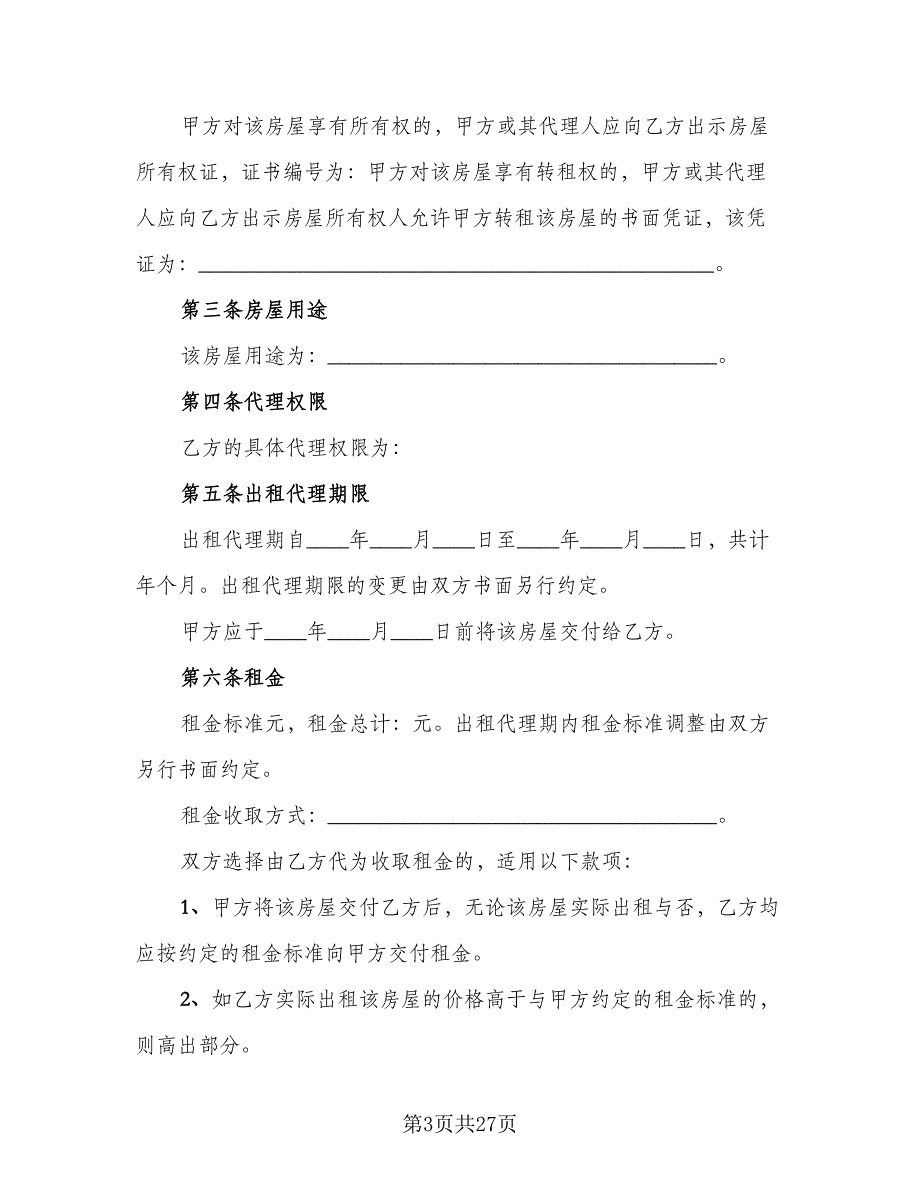 甲方对该房屋享有所有权的，甲方或其代理人应向乙方出示房屋
所有权证，证书编号为：甲方对该房屋享有转租权的，甲方或其代理
人应向乙方出示房屋所有权人允许甲方转租该房屋的书面凭证，该凭
证为：_________________________________________________。
第三条房屋用途
该房屋用途为：_____________________________________。
第四条代理权限
乙方的具体代理权限为：
第五条出租代理期限
出租代理期自____年____月____日至____年____月____日，共计
年个月。出租代理期限的变更由双方书面另行约定。
甲方应于____年____月____日前将该房屋交付给乙方。
第六条租金
租金标准元，租金总计：元。出租代理期内租金标准调整由双方
另行书面约定。
租金收取方式：_____________________________________。
双方选择由乙方代为收取租金的，适用以下款项：
1、甲方将该房屋交付乙方后，无论该房屋实际出租与否，乙方均
应按约定的租金标准向甲方交付租金。
2、如乙方实际出租该房屋的价格高于与甲方约定的租金标准的，
则高出部分。
第3页共27页